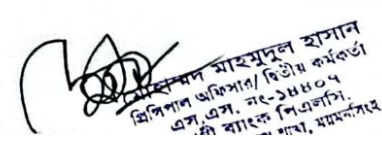 মোহাম্মদ মাহমুদুল হাসান
প্রিন্সিপাল অফিসার/ দ্বিতীয় কর্মকর্তা
এস.এস. নং-১৪৪০৭
ব্যাংক পিএলসি.
শাখা, ময়মনসিংহ